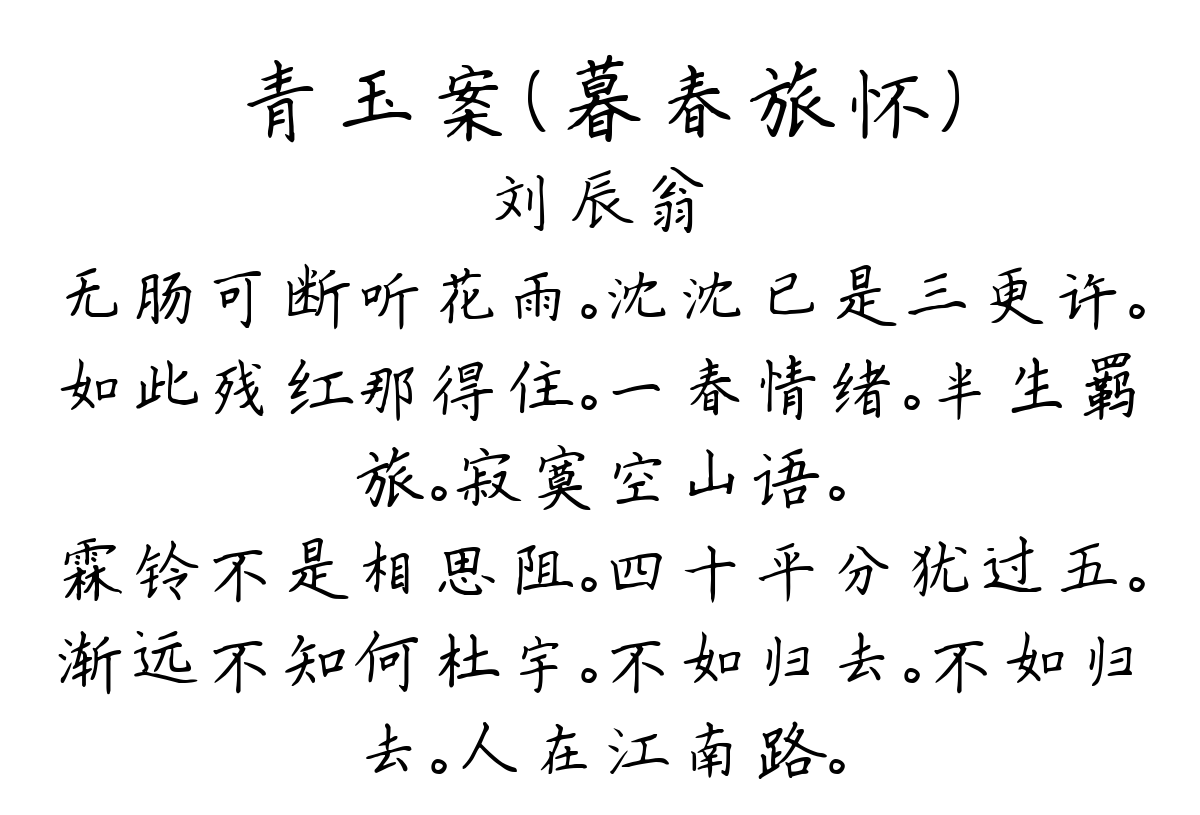 青玉案(暮春旅怀)
刘辰翁
无肠可断听花雨。沈沈已是三更许。
如此残红那得住。一春情绪。半生羁
旅。寂寞空山语。
霖铃不是相思阻。四十平分犹过五。
渐远不知何杜宇。不如归去。不如归
去。人在江南路。